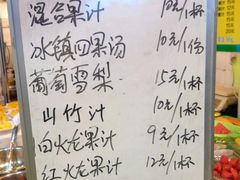 混合果汁 10元/1杯
冰镇四果汤 10元/1份
葡萄雪梨 15元/1杯
山竹汁 10元/1杯
白火龙果汁 9元/1杯
红火龙果汁 12元/1杯